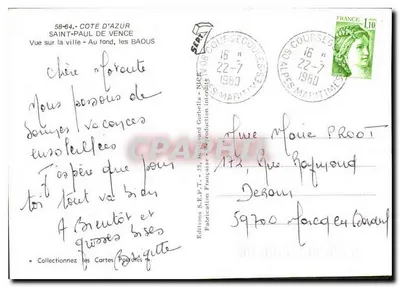 58-64.- COTE D'AZUR
SAINT-PAUL DE VENCE
Vue sur la ville - Au fond, les BAOUS
Chère
Nous passons de
vacances
ensoleillées
J'espère que pour
toi tout va bien
A Bientôt et
grosses bises
Brigitte
Collectionnez les Cartes Postales
SEPT
Editions S.E.P.T. - NICE
Fabrication Française - Reproduction interdite
16 H
22-7
1980
ALPES MARITIMES
16 H
22-7
1980
ALPES MARITIMES
FRANCE
1,10
Mme Marie PROOT
172, Rue Raymond
Derain
59700 Marcq en Baroeul
CPARAMA